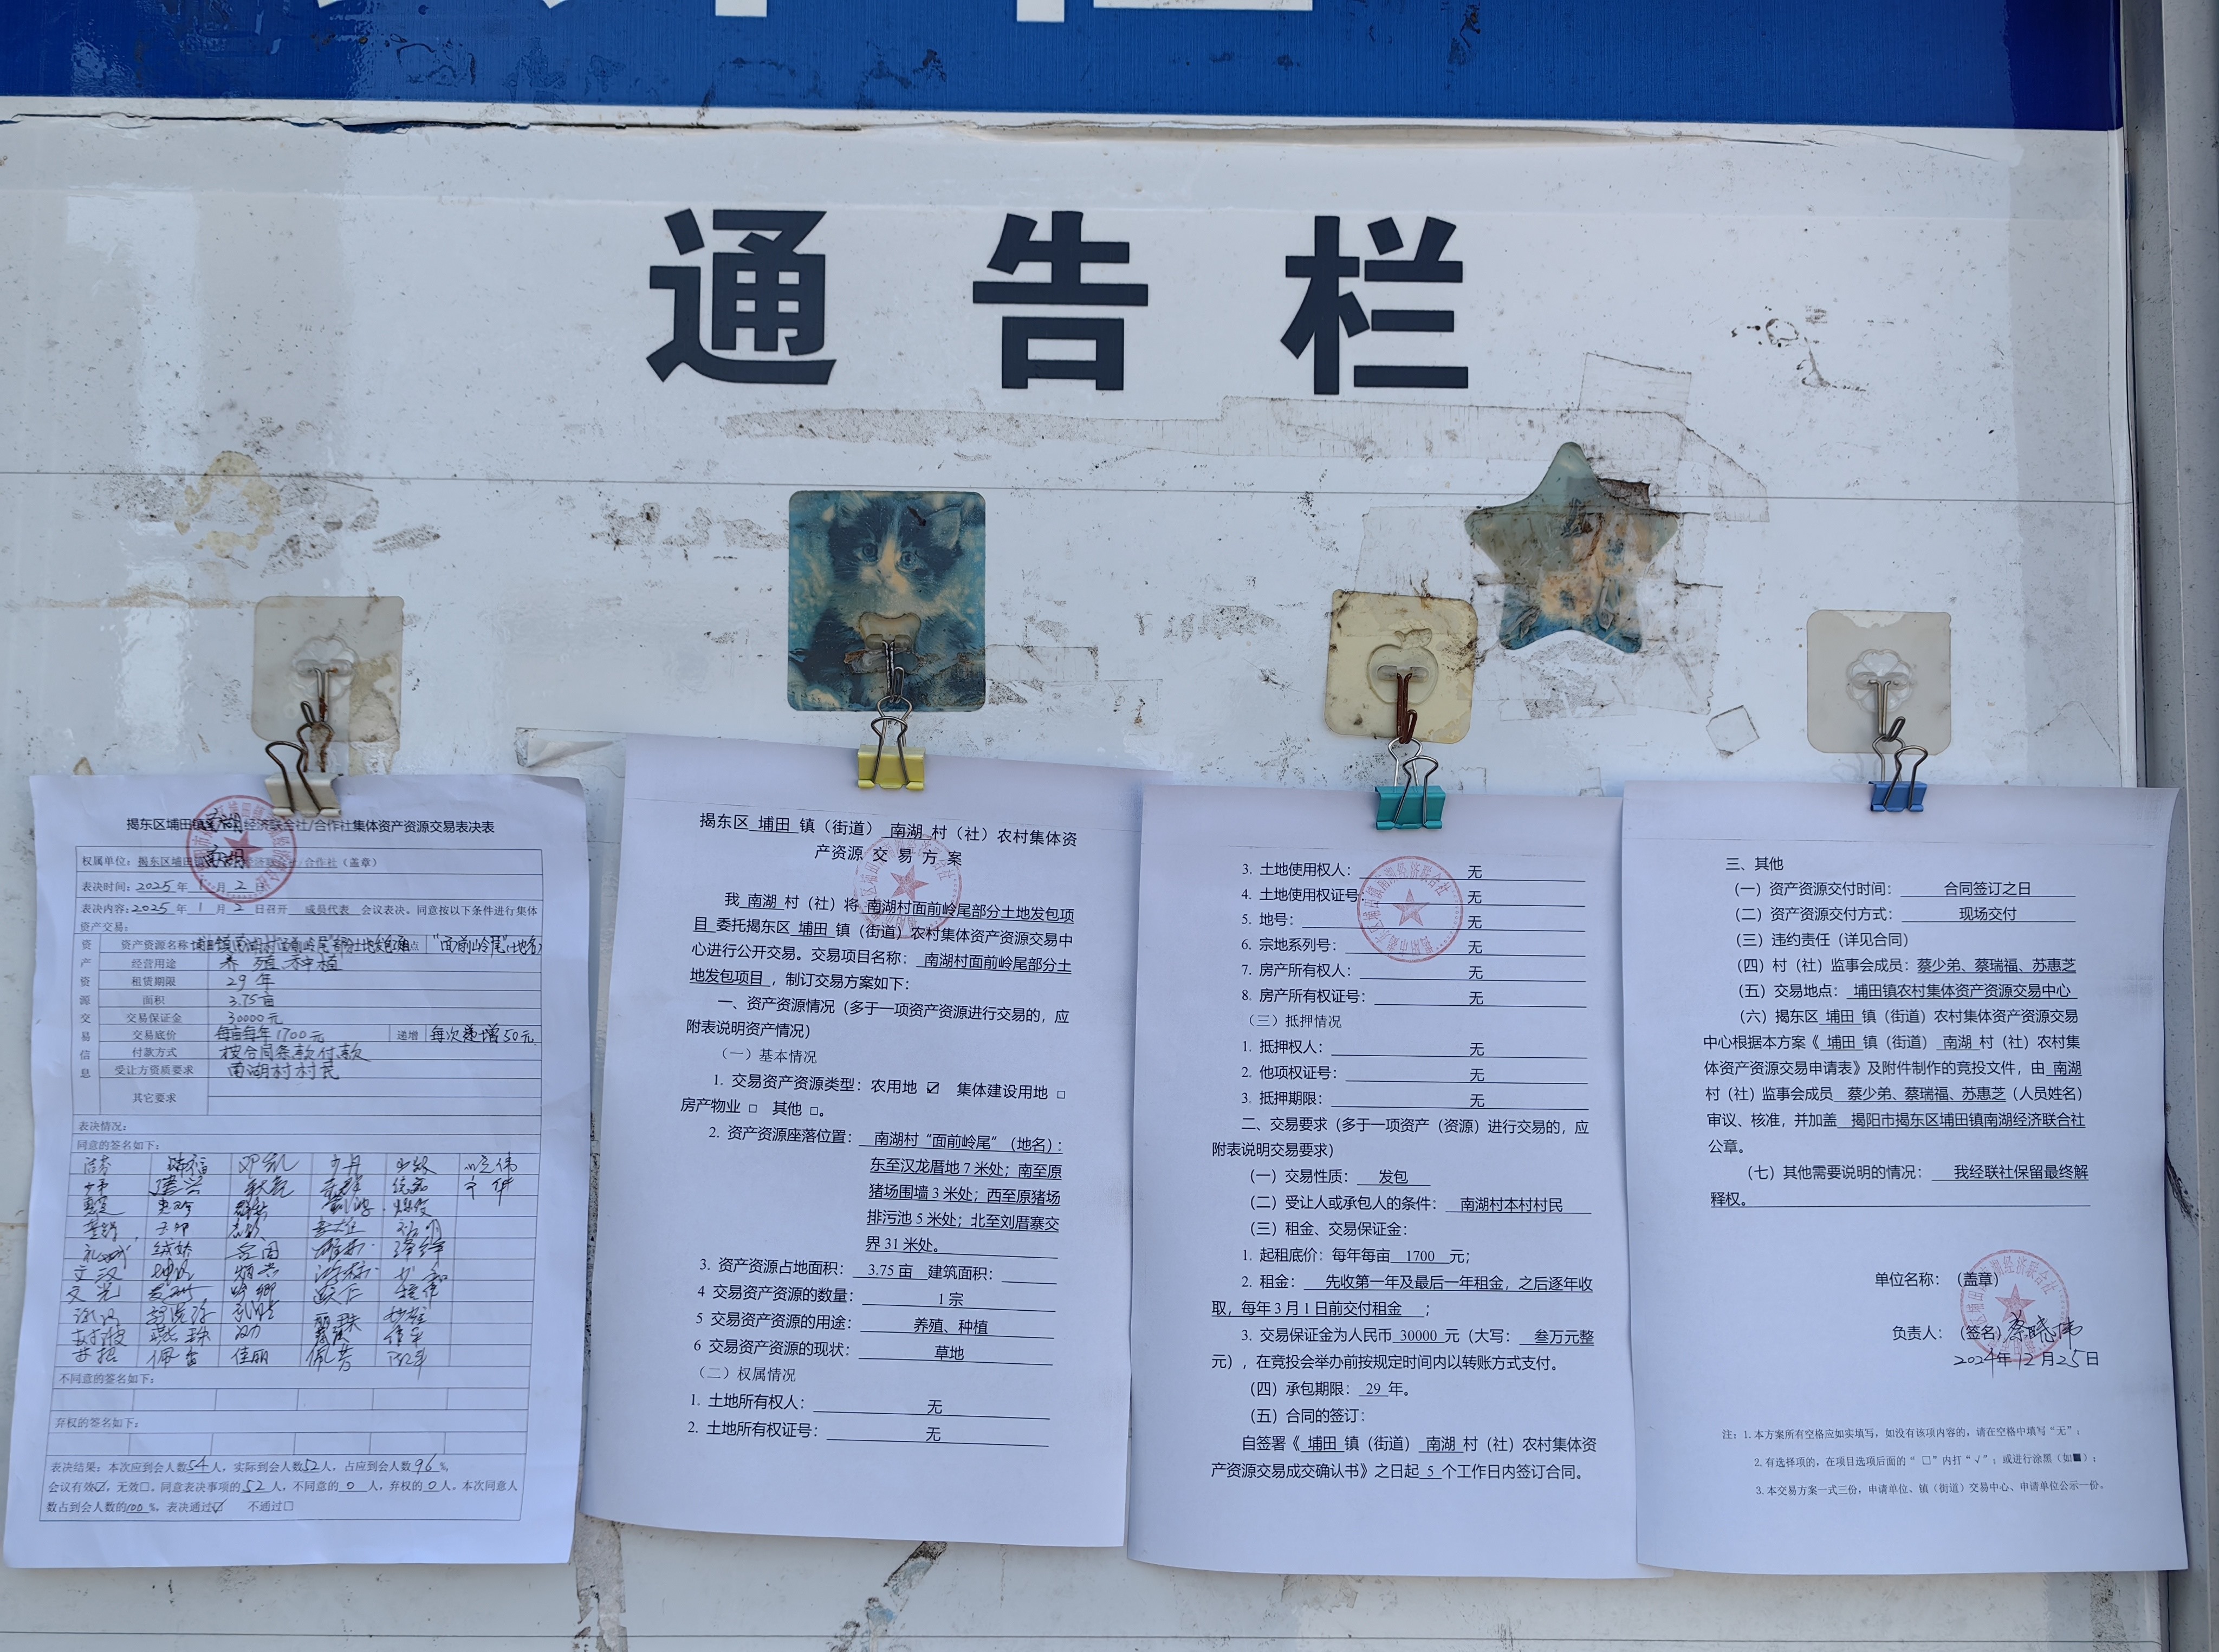 通告栏
揭东区埔田镇南湖经济联合社/合作社集体资产资源交易表决表
权属单位：揭东区埔田镇南湖经济联合社/合作社（盖章）
表决时间：2025年1月2日
表决内容：2025年1月2日召开 成员代表 会议表决。同意按以下条件进行集体
资产交易：
资产资源交易信息
资产资源名称 埔田镇南湖村面前岭尾部分土地发包项目 地点 “面前岭尾”（地名）
经营用途 养殖、种植
租赁期限 29年
面积 3.75亩
交易保证金 30000元
交易底价 每亩每年1700元 递增 每次递增50元
付款方式 按合同条款付款
受让方资质要求 南湖村村民
其它要求
表决情况：
同意的签名如下：
不同意的签名如下：
弃权的签名如下：
表决结果：本次应到会人数54人，实际到会人数52人，占应到会人数96%，
会议有效☑，无效□。同意表决事项的52人，不同意的0人，弃权的0人。本次同意人
数占到会人数的100%，表决通过☑ 不通过□
揭东区 埔田 镇（街道） 南湖 村（社）农村集体资
产资源 交 易 方 案
我 南湖 村（社）将 南湖村面前岭尾部分土地发包项
目 委托揭东区 埔田 镇（街道）农村集体资产资源交易中
心进行公开交易。交易项目名称： 南湖村面前岭尾部分土
地发包项目 ，制订交易方案如下：
一、资产资源情况（多于一项资产资源进行交易的，应
附表说明资产情况）
（一）基本情况
1. 交易资产资源类型：农用地 ☑ 集体建设用地 □
房产物业 □ 其他 □。
2. 资产资源座落位置： 南湖村“面前岭尾”（地名）：
东至汉龙厝地7米处；南至原
猪场围墙3米处；西至原猪场
排污池5米处；北至刘厝寨交
界31米处。
3. 资产资源占地面积： 3.75亩 建筑面积：
4 交易资产资源的数量： 1宗
5 交易资产资源的用途： 养殖、种植
6 交易资产资源的现状： 草地
（二）权属情况
1. 土地所有权人： 无
2. 土地所有权证号： 无
3. 土地使用权人： 无
4. 土地使用权证号： 无
5. 地号： 无
6. 宗地系列号： 无
7. 房产所有权人： 无
8. 房产所有权证号： 无
（三）抵押情况
1. 抵押权人： 无
2. 他项权证号： 无
3. 抵押期限： 无
二、交易要求（多于一项资产（资源）进行交易的，应
附表说明交易要求）
（一）交易性质： 发包
（二）受让人或承包人的条件： 南湖村本村村民
（三）租金、交易保证金：
1. 起租底价：每年每亩 1700 元；
2. 租金： 先收第一年及最后一年租金，之后逐年收
取，每年3月1日前交付租金 ；
3. 交易保证金为人民币 30000 元（大写： 叁万元整
元），在竞投会举办前按规定时间内以转账方式支付。
（四）承包期限： 29 年。
（五）合同的签订：
自签署《 埔田 镇（街道） 南湖 村（社）农村集体资
产资源交易成交确认书》之日起 5 个工作日内签订合同。
三、其他
（一）资产资源交付时间： 合同签订之日
（二）资产资源交付方式： 现场交付
（三）违约责任（详见合同）
（四）村（社）监事会成员：蔡少弟、蔡瑞福、苏惠芝
（五）交易地点： 埔田镇农村集体资产资源交易中心
（六）揭东区 埔田 镇（街道）农村集体资产资源交易
中心根据本方案《 埔田 镇（街道） 南湖 村（社）农村集
体资产资源交易申请表》及附件制作的竞投文件，由 南湖
村（社）监事会成员 蔡少弟、蔡瑞福、苏惠芝（人员姓名）
审议、核准，并加盖 揭阳市揭东区埔田镇南湖经济联合社
公章。
（七）其他需要说明的情况： 我经联社保留最终解
释权。
单位名称：（盖章）
负责人：（签名）蔡晓伟
2024年12月25日
注：1.本方案所有空格应如实填写，如没有该项内容的，请在空格中填写“无”；
2.有选择项的，在项目选项后面的“ □”内打“√”；或进行涂黑（如■）；
3.本交易方案一式三份，申请单位、镇（街道）交易中心、申请单位公示一份。